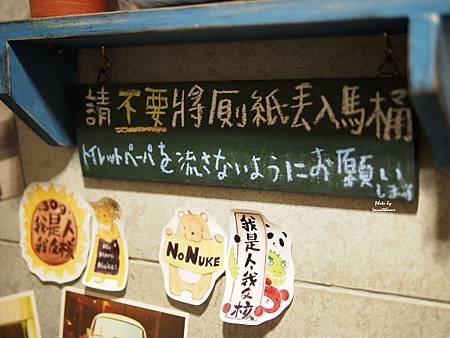 請不要將廁紙丟入馬桶
トイレットペーパを流さないようにお願い
します
309
我是人
我反核
No
More
Nuke!
NO NUKE
我是人我反核
Photo by